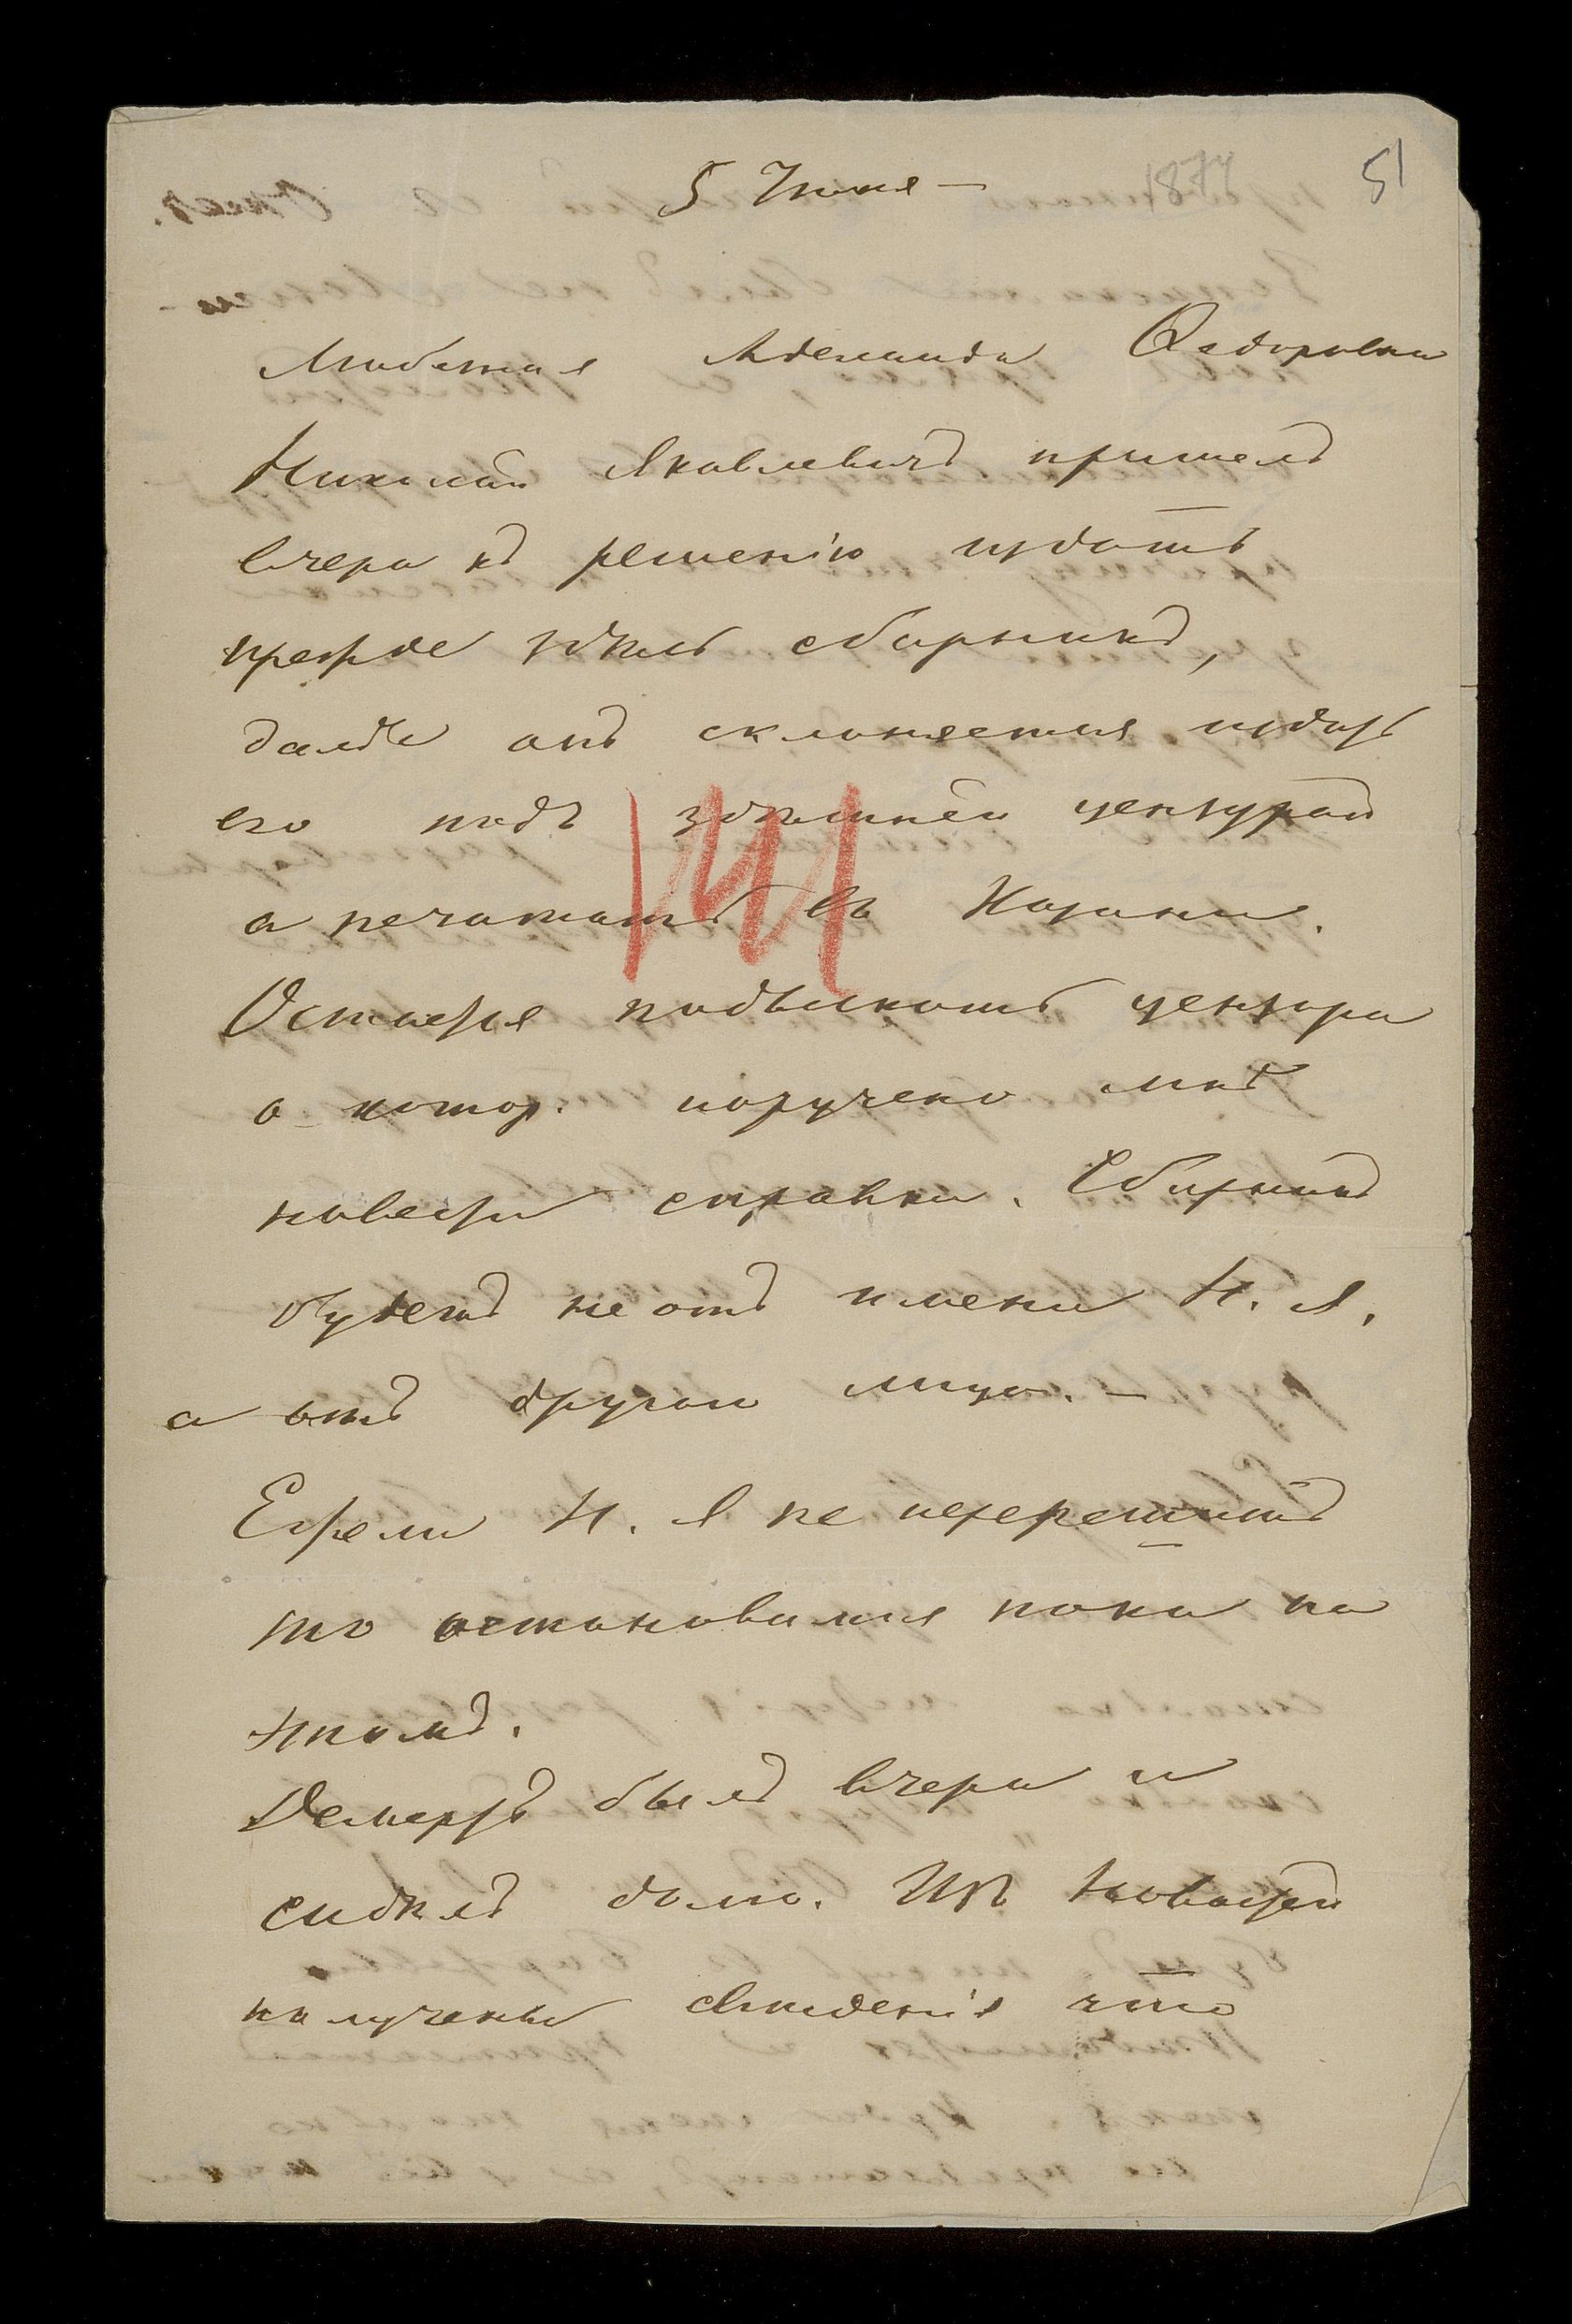 5 Июня —
1874
51
Любезная Аделаида Федоровна
Николай Яковлевичъ пришелъ
вчера къ решенію издать
прежде всего сборникъ,
далѣе онъ склоняется издать
его подъ здѣшней цензурой
а печатать въ Казани.
Остается подыскать цензора
о котор. поручено мнѣ
навести справки. Сборникъ
будетъ не отъ имени Н. Я.
а отъ другаго лица. —
Ежели Н. Я не перерешитъ
то остановимся пока на
этомъ.
Демертъ былъ вчера и
сидѣлъ долго. Изъ
получены свѣдѣнія что